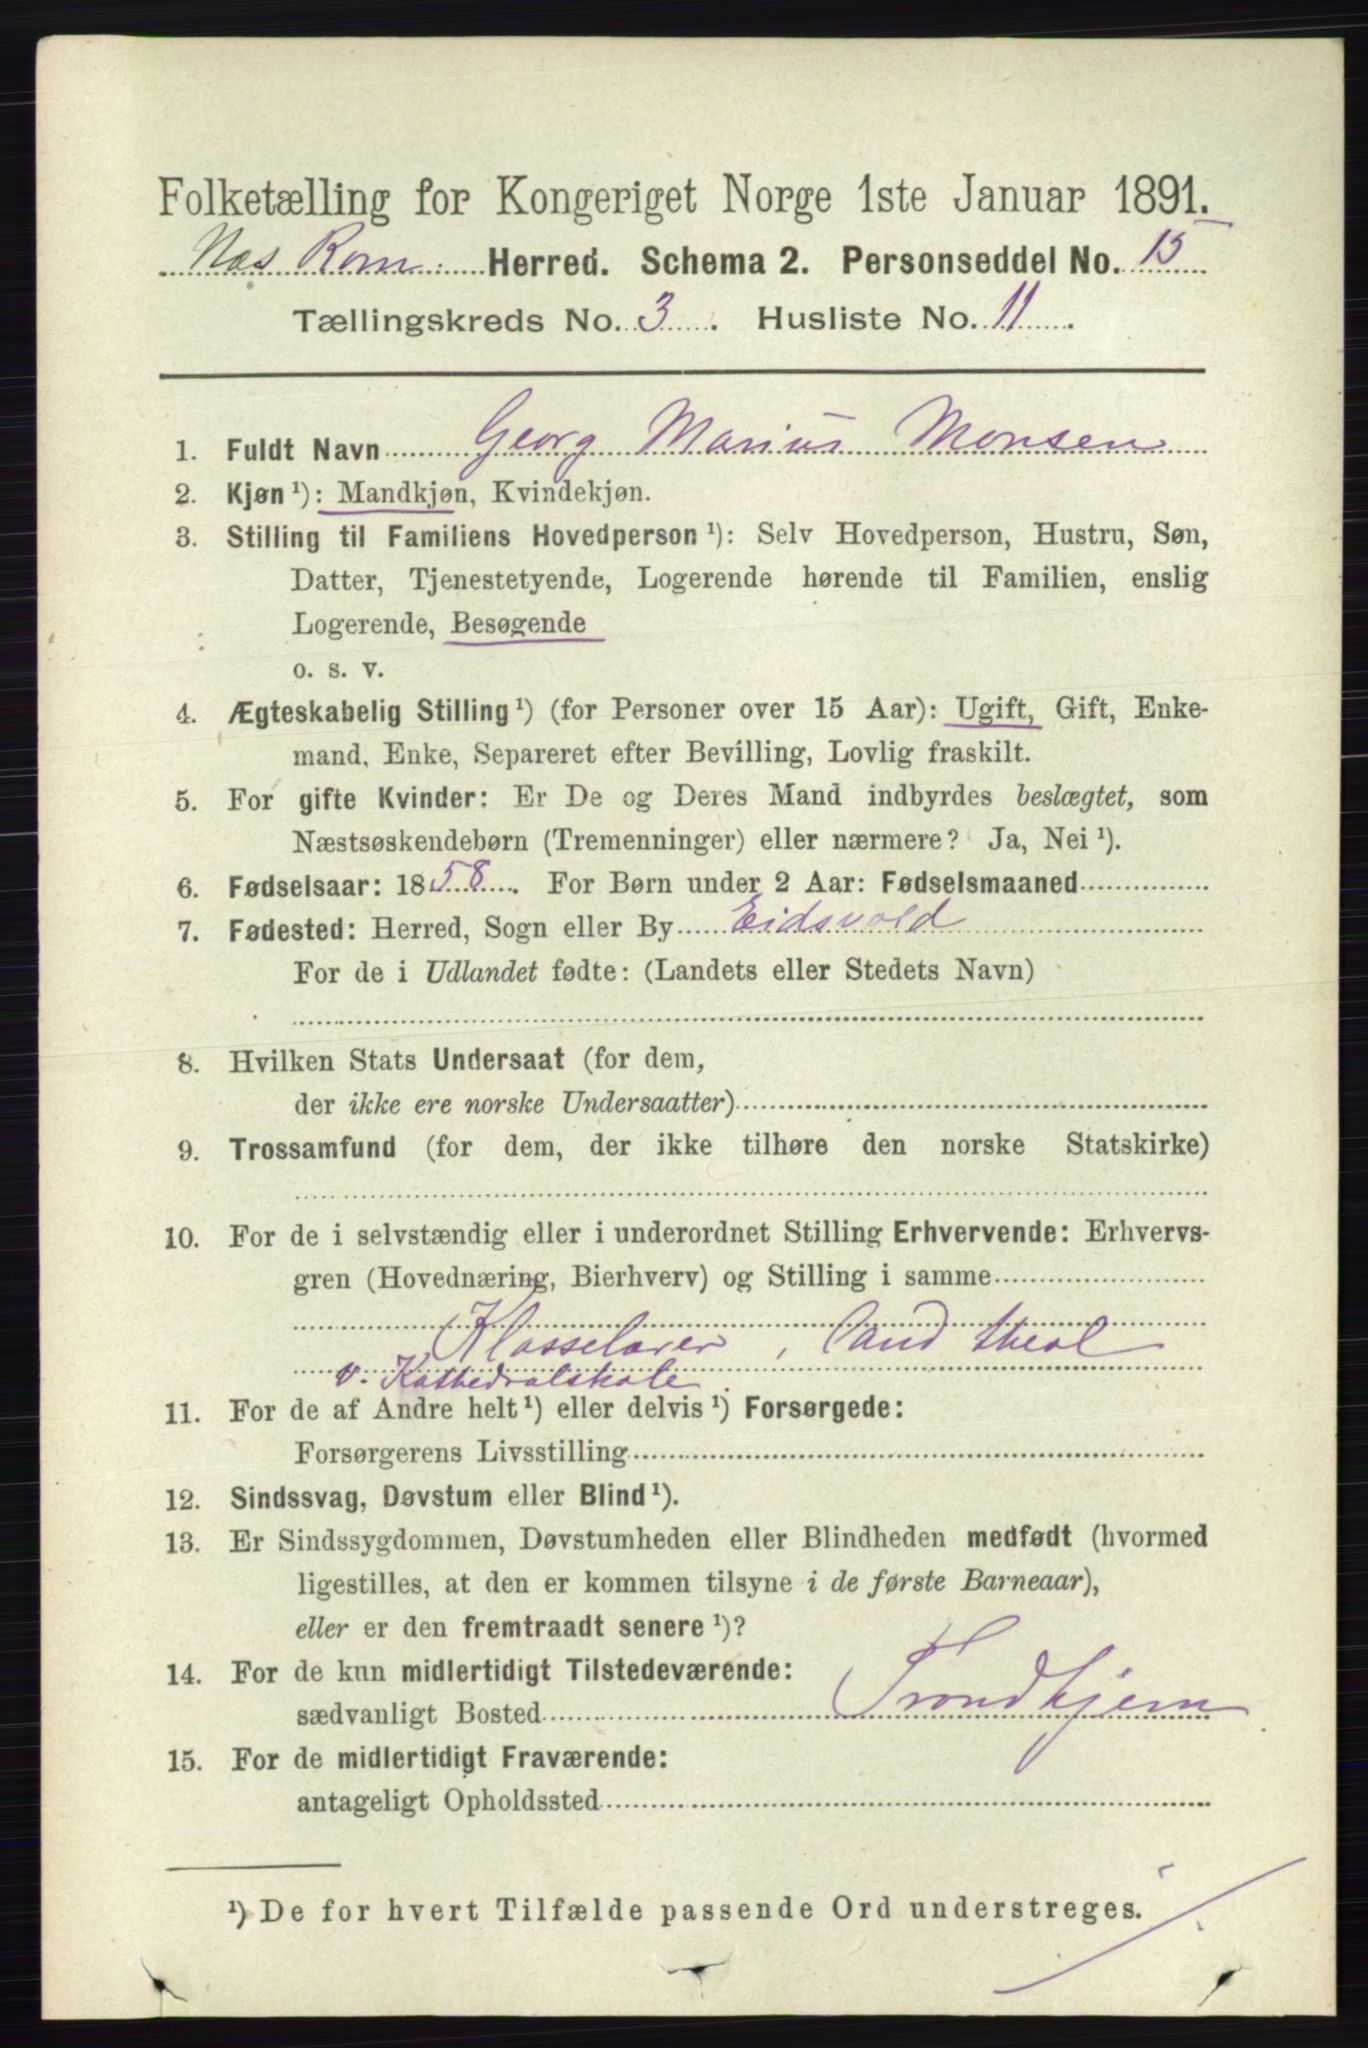 Folketælling for Kongeriget Norge 1ste Januar 1891.
Nes Rom. Herred. Schema 2. Personseddel No. 15
Tællingskreds No. 3. Husliste No. 11.
1. Fuldt Navn Georg Marius Monsen
2. Kjøn ¹): Mandkjøn, Kvindekjøn.
3. Stilling til Familiens Hovedperson ¹): Selv Hovedperson, Hustru, Søn,
Datter, Tjenestetyende, Logerende hørende til Familien, enslig
Logerende, Besøgende
o. s. v.
4. Ægteskabelig Stilling ¹) (for Personer over 15 Aar): Ugift, Gift, Enke-
mand, Enke, Separeret efter Bevilling, Lovlig fraskilt.
5. For gifte Kvinder: Er De og Deres Mand indbyrdes beslægtet, som
Næstsøskendebørn (Tremenninger) eller nærmere? Ja, Nei ¹).
6. Fødselsaar: 1858. For Børn under 2 Aar: Fødselsmaaned
7. Fødested: Herred, Sogn eller By Eidsvold
For de i Udlandet fødte: (Landets eller Stedets Navn)
8. Hvilken Stats Undersaat (for dem,
der ikke ere norske Undersaatter)
9. Trossamfund (for dem, der ikke tilhøre den norske Statskirke)
10. For de i selvstændig eller i underordnet Stilling Erhvervende: Erhvervs-
gren (Hovednæring, Bierhverv) og Stilling i samme
Klasselærer, Cand theol
v. Kathedralskole.
11. For de af Andre helt ¹) eller delvis ¹) Forsørgede:
Forsørgerens Livsstilling
12. Sindssvag, Døvstum eller Blind ¹).
13. Er Sindssygdommen, Døvstumheden eller Blindheden medfødt (hvormed
ligestilles, at den er kommen tilsyne i de første Barneaar),
eller er den fremtraadt senere ¹)?
14. For de kun midlertidigt Tilstedeværende:
sædvanligt Bosted Trondhjem
15. For de midlertidigt Fraværende:
antageligt Opholdssted
¹) De for hvert Tilfælde passende Ord understreges.